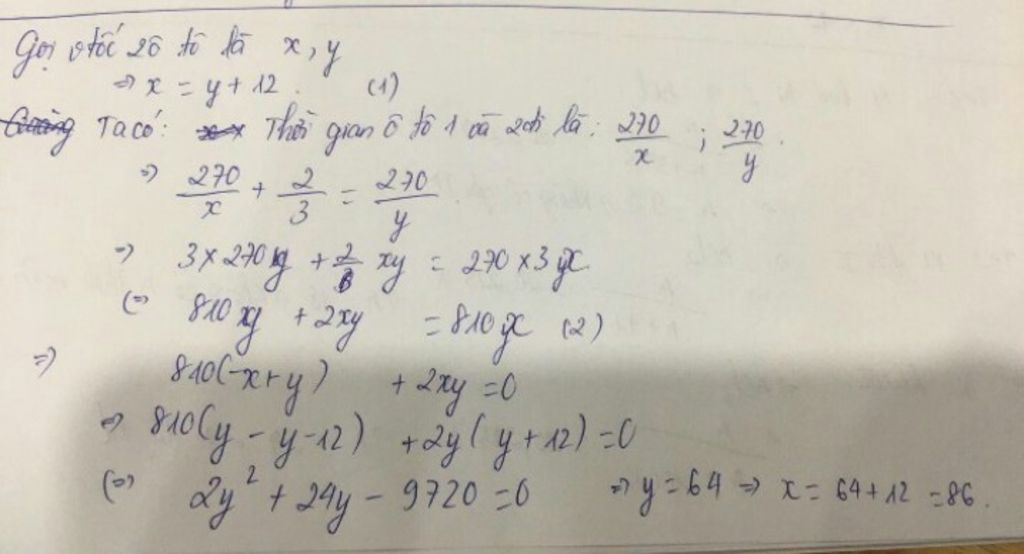 Gọi vtốc 2ô tô là x, y
=> x = y + 12. (1)
Ta có: Thời gian ô tô 1 và 2 đi là: 270/x ; 270/y.
=> 270/x + 2/3 = 270/y
=> 3 x 270 y + 2 xy = 270 x 3 x
<=> 810 y + 2xy = 810 x (2)
=> 810(-x+y) + 2xy = 0
=> 810(y - y - 12) + 2y(y + 12) = 0
<=> 2y² + 24y - 9720 = 0 => y = 64 => x = 64 + 12 = 86.